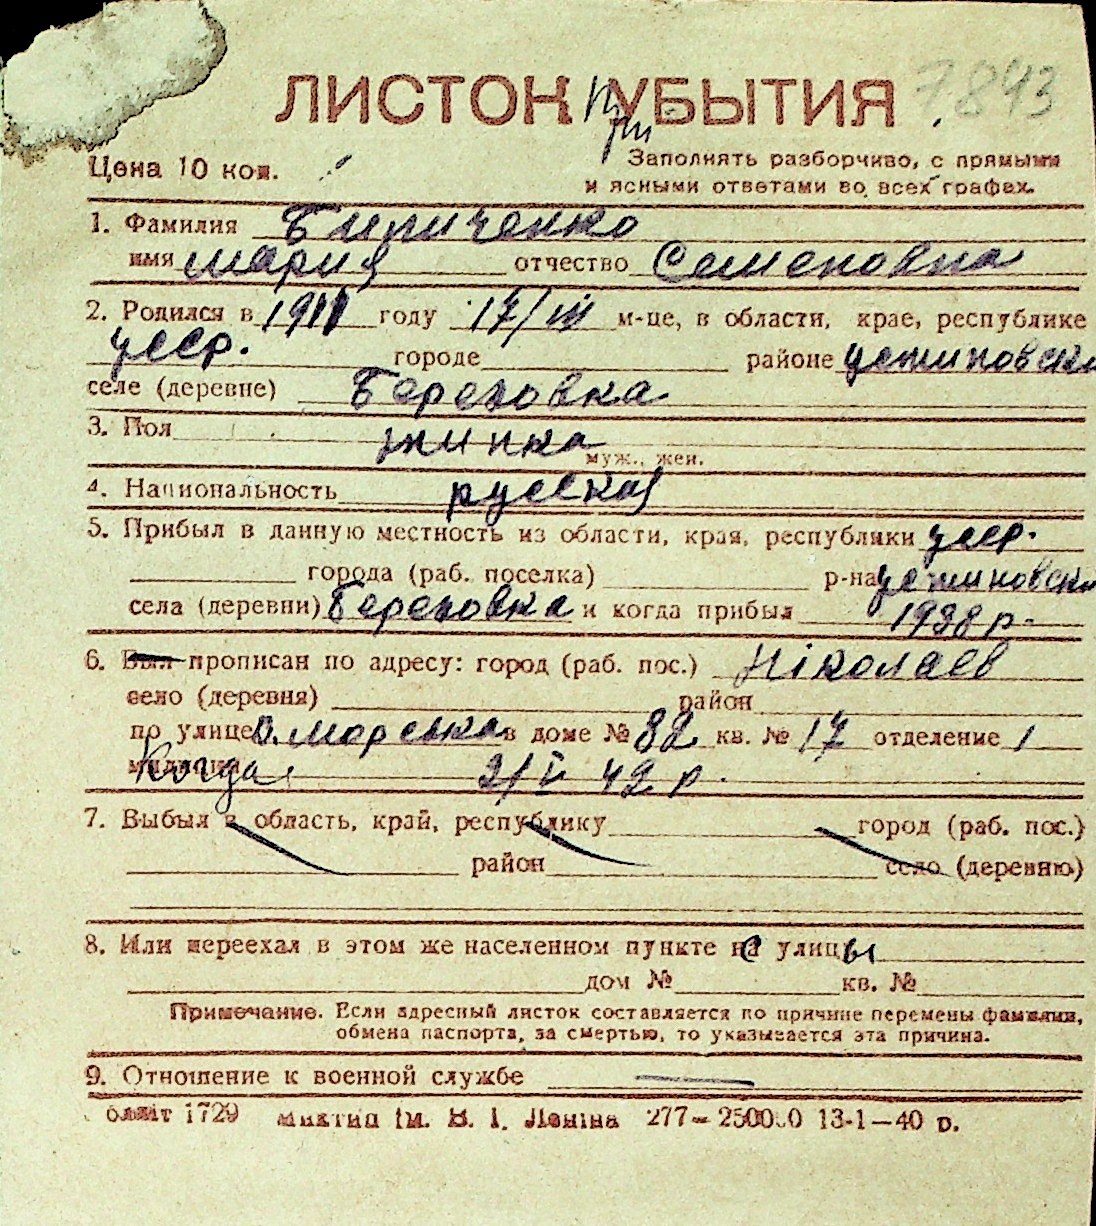 ЛИСТОК При УБЫТИЯ 7843
Цена 10 коп.
Заполнять разборчиво, с прямыми
и ясными ответами во всех графах.
1. Фамилия Бириченко
имя Мария отчество Семеновна
2. Родился в 1911 году 17/III м-це, в области, крае, республике
усср. городе районе устиновски
селе (деревне) Березовка
3. Пол жинка
муж., жен.
4. Национальность русская
5. Прибыл в данную местность из области, края, республики усср.
города (раб. поселка) р-на устиновски
села (деревни) Березовка и когда прибыл 1938 р.
6. Был прописан по адресу: город (раб. пос.) Ніколаев
село (деревня) район
по улице В. Морська в доме № 82 кв. № 17 отделение 1
милиции Когда 21/V 42 р.
7. Выбыл в область, край, республику город (раб. пос.)
район село (деревню)
8. Или переехал в этом же населенном пункте с улицы
дом № кв. №
Примечание. Если адресный листок составляется по причине перемены фамилии,
обмена паспорта, за смертью, то указывается эта причина.
9. Отношение к военной службе —
Облліт 1729 ім. В. І. Леніна 277—250000 13-1—40 р.